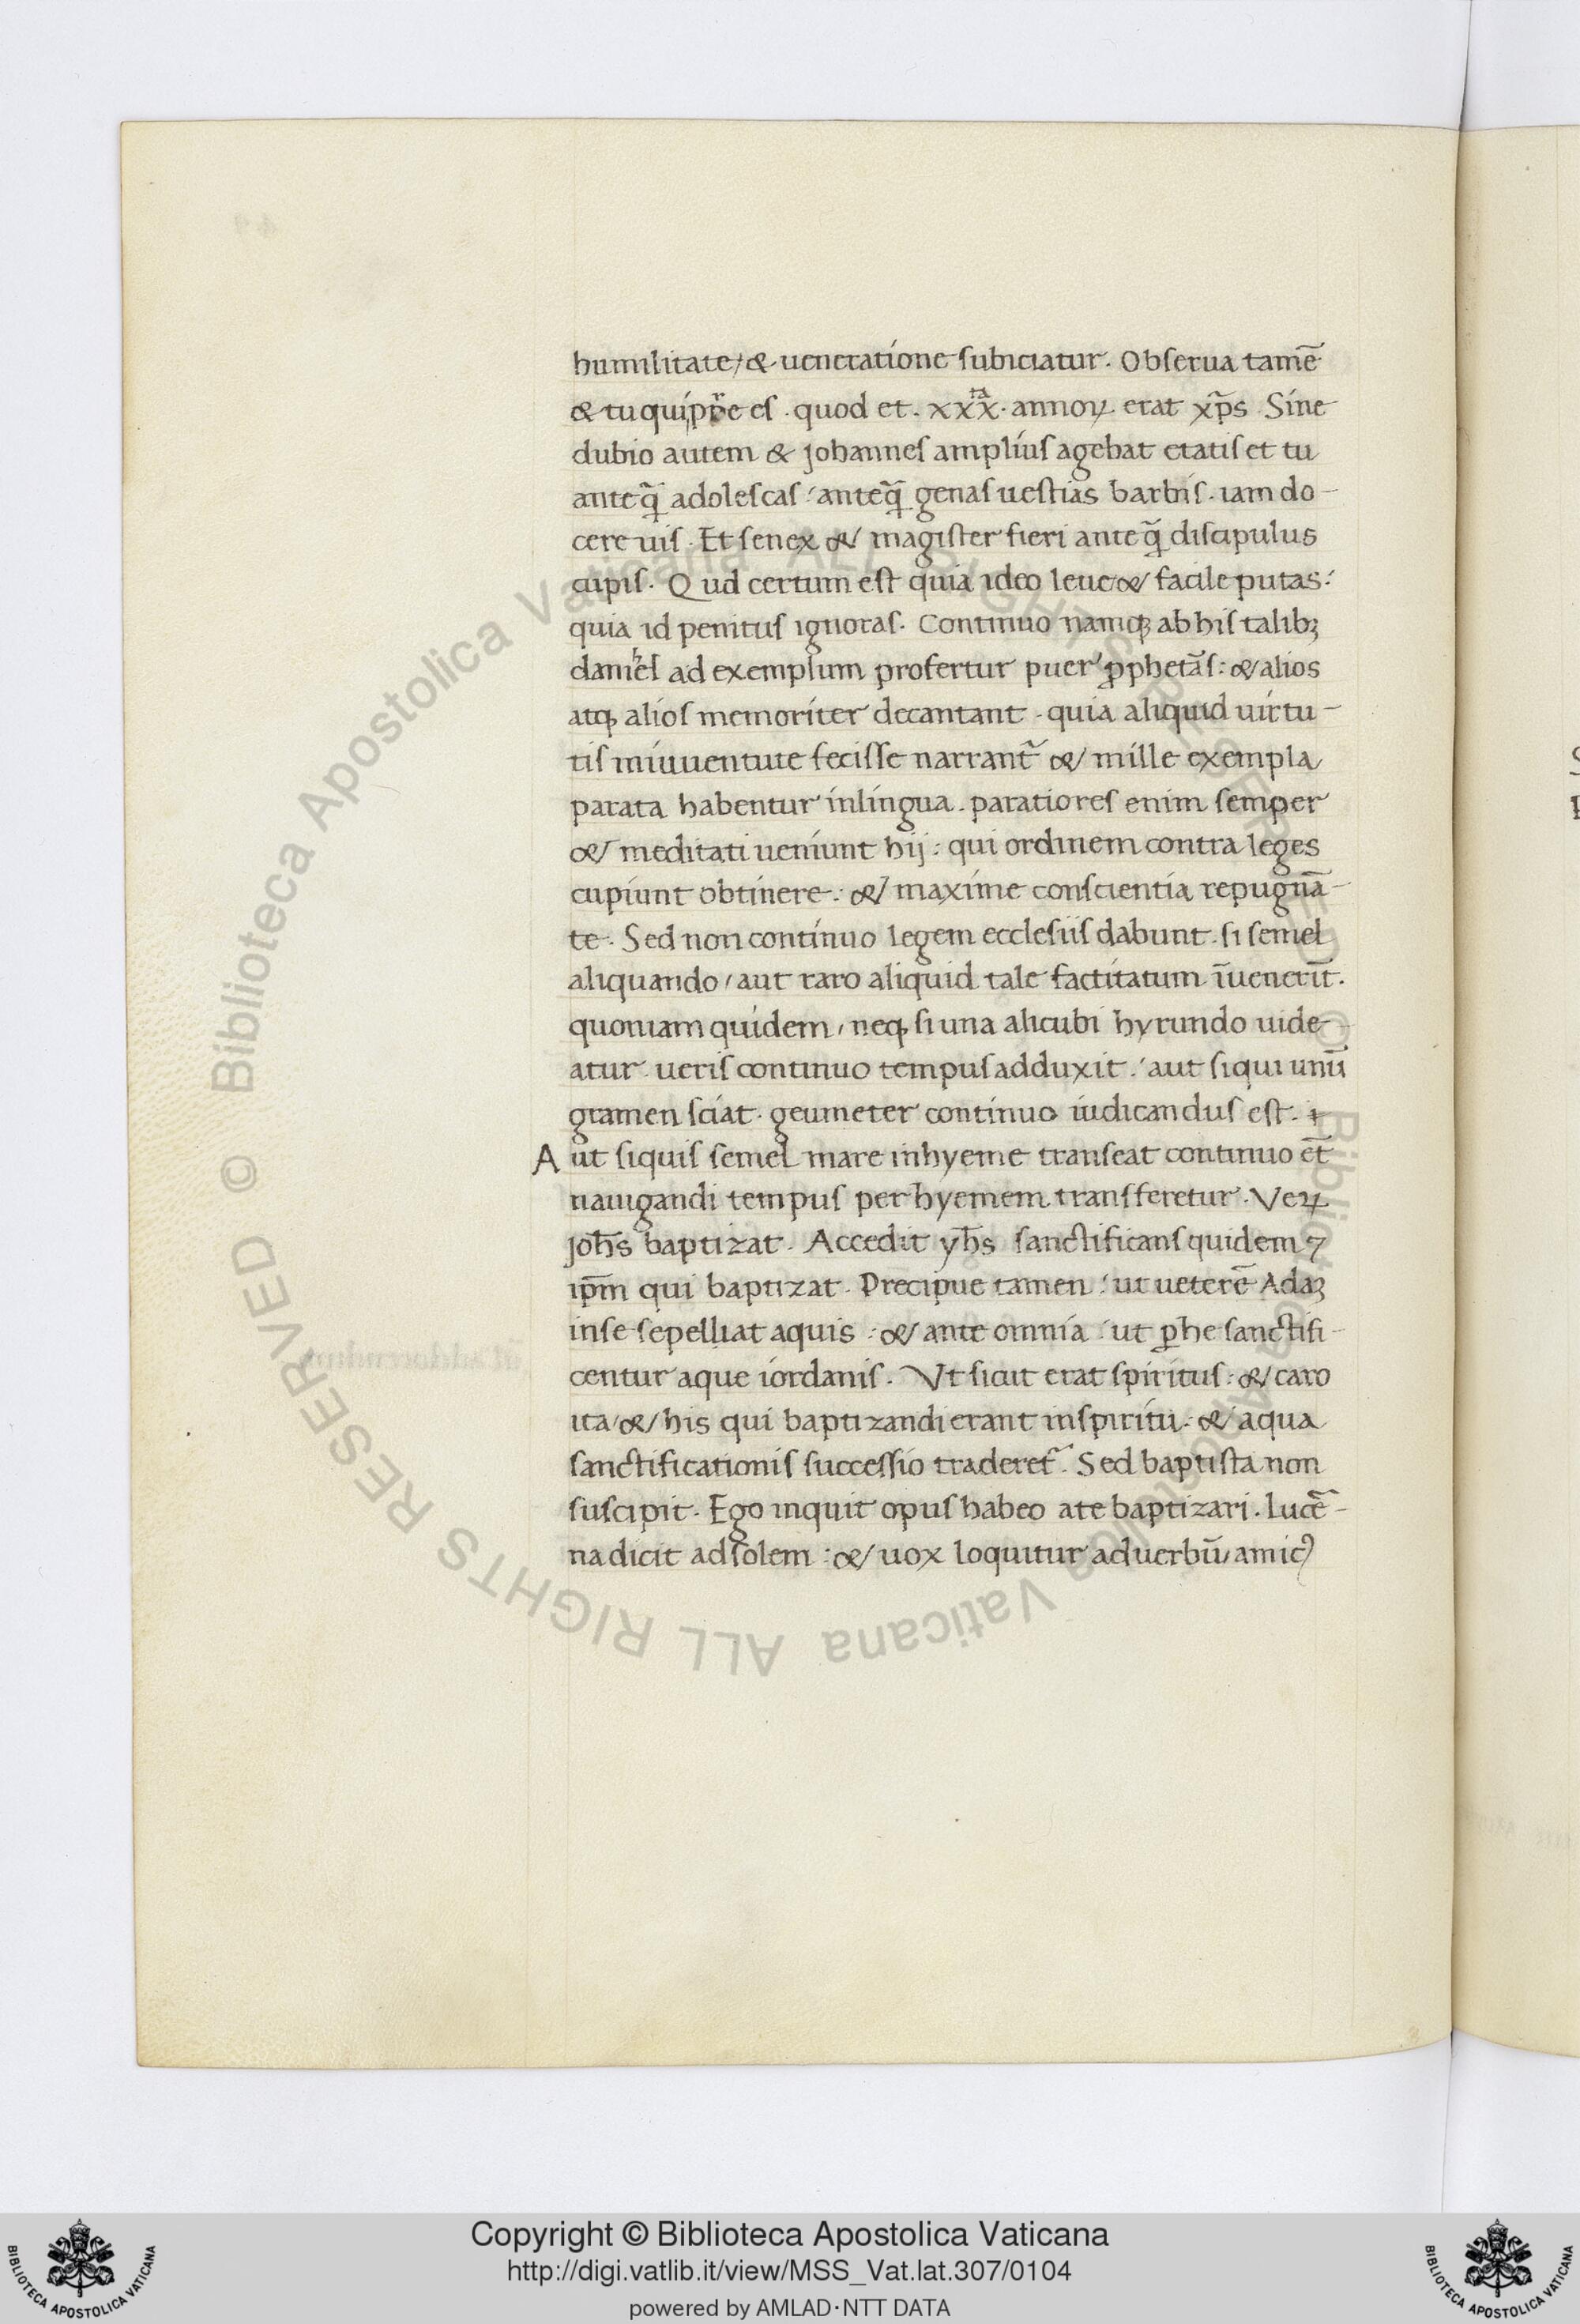 humilitate, & ueneratione subiciatur. Obserua tamē
& tu qui pp̄e es. quod et. xxx^ta. annoꝝ erat xp̄s. Sine
dubio autem & Johannes amplius agebat etatis et tu
anteq̄ adolescas: anteq̄ genas uestias barbis. iam do-
cere uis. Et senex & magister fieri anteq̄ discipulus
cupis. Qud certum est quia ideo leue & facile putas:
quia id penitus ignoras. Continuo namqꝫ ab his talibꝫ
daniel ad exemplum profertur puer ꝓphetās: & alios
atqꝫ alios memoriter decantant. quia aliquid uirtu-
tis iniuuentute fecisse narrant᷑ & mille exempla
parata habentur inlingua. paratiores enim semper
& meditati ueniunt hij: qui ordinem contra leges
cupiunt obtinere: & maxime conscientia repugnā-
te. Sed non continuo legem ecclesiis dabunt. si semel
aliquando, aut raro aliquid tale factitatum īuenerīt.
quoniam quidem, neqꝫ si una alicubi hyrundo uide-
atur ueris continuo tempus adduxit: aut siqui unū
gramen sciat. geumeter continuo iudicandus est.
Aut siquis semel mare inhyeme transeat continuo et̄
nauigandi tempus per hyemem transferetur. Veꝝ
joh̄s baptizat. Accedit yh̄s sanctificans quidem ⁊
ip̄m qui baptizat. Precipue tamen: ut ueterē Adaꝫ
inse sepelliat aquis: & ante omnia: ut ꝑ he sanctifi-
centur aque iordanis. Vt sicut erat spiritus: & caro
ita & his qui baptizandi erant inspiritu: & aqua
sanctificationis successio traderet᷑. Sed baptista non
suscipit. Ego inquit opus habeo ate baptizari. Lucē-
na dicit adsolem: & uox loquitur aduerbū, amicꝯ
Copyright © Biblioteca Apostolica Vaticana
http://digi.vatlib.it/view/MSS_Vat.lat.307/0104
powered by AMLAD·NTT DATA
BIBLIOTECA APOSTOLICA VATICANA
BIBLIOTECA APOSTOLICA VATICANA
© Biblioteca Apostolica Vaticana ALL RIGHTS RESERVED
© Biblioteca Apostolica Vaticana ALL RIGHTS RESERVED